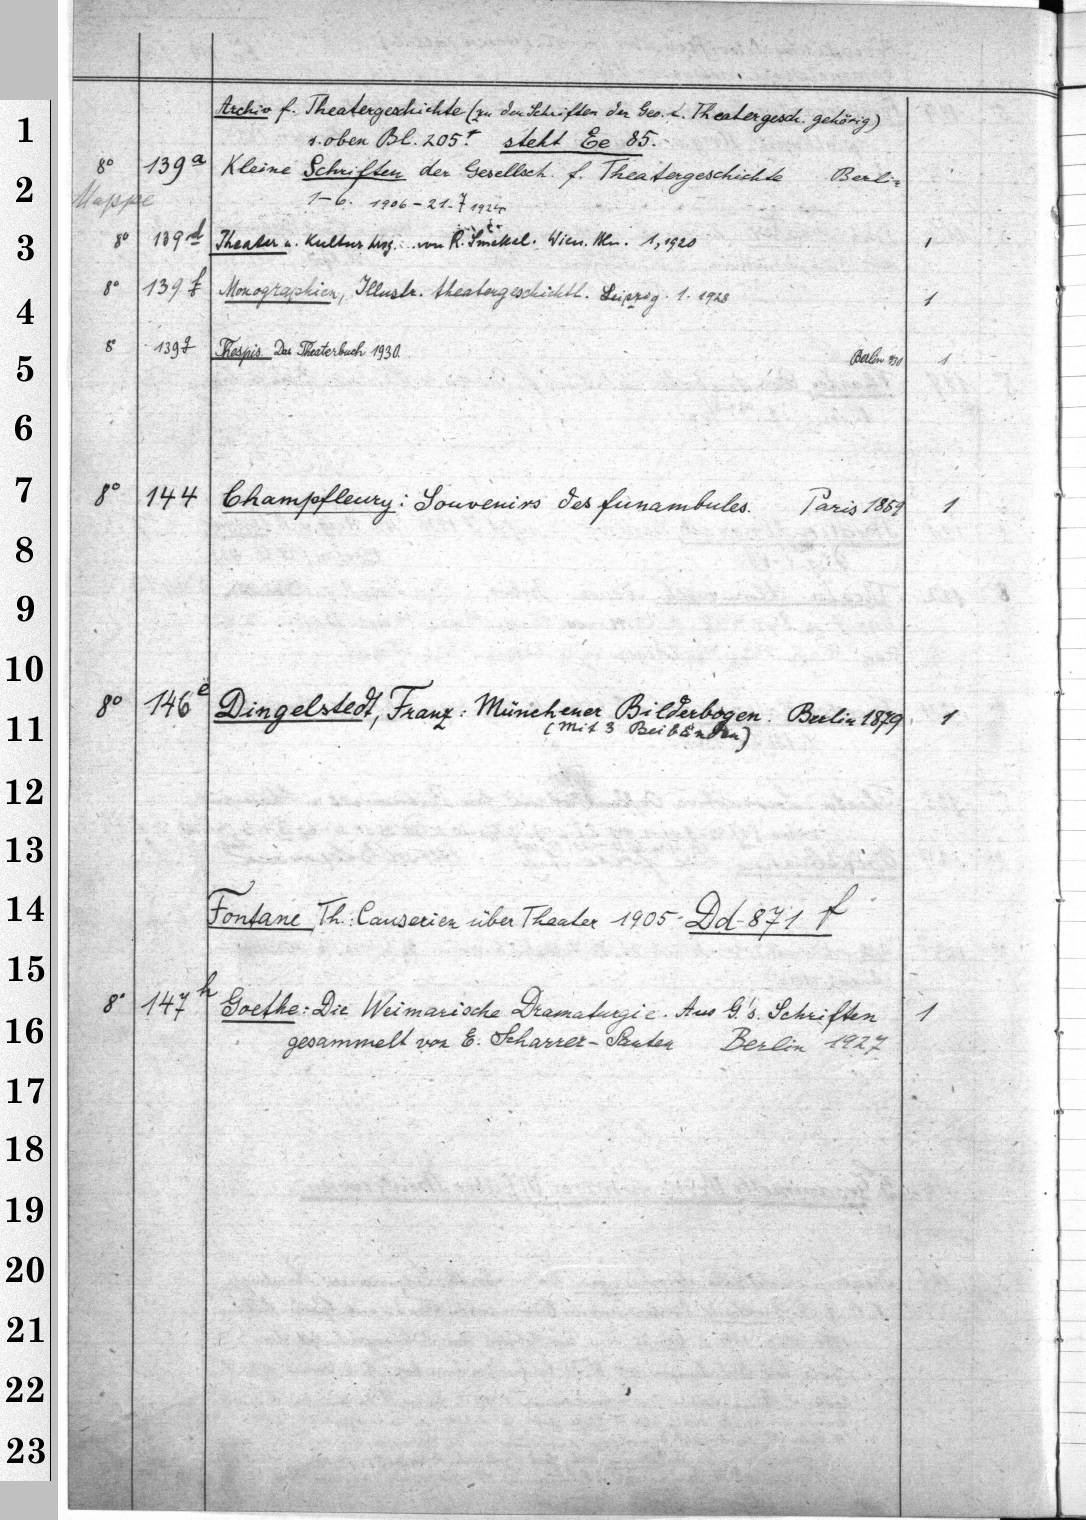 Archiv f. Theatergeschichte (zu den Schriften der Ges. f. Theatergesch. gehörig)
1
s. oben Bl. 205r steht Ee 85.
8° 139a Kleine Schriften der Gesellsch. f. Theatergeschichte Berlin
2
Mappe 1-6. 1906-21. 7 1924
3 8° 139d Theater u. Kultur hrsg. von R. Smekal. Wien. 1, 1920 1
8° 139f Monographien, Illustr. theatergeschichtl. Leipzig. 1. 1928 1
4
8° 139g Thespis. Das Theaterbuch 1930. Berlin 930 1
5
6
7 8° 144 Champfleury: Souvenirs des funambules. Paris 1859 1
8
9
10
8° 146e Dingelstedt, Franz: Münchener Bilderbogen. Berlin 1879 1
11 (Mit 3 Beibänden)
12
13
14 Fontane Th.: Causerien über Theater 1905- Dd 871 f
15
8° 147h Goethe: Die Weimarische Dramaturgie. Aus G's. Schriften 1
16 gesammelt von E. Scharrer-Santen Berlin 1927
17
18
19
20
21
22
23